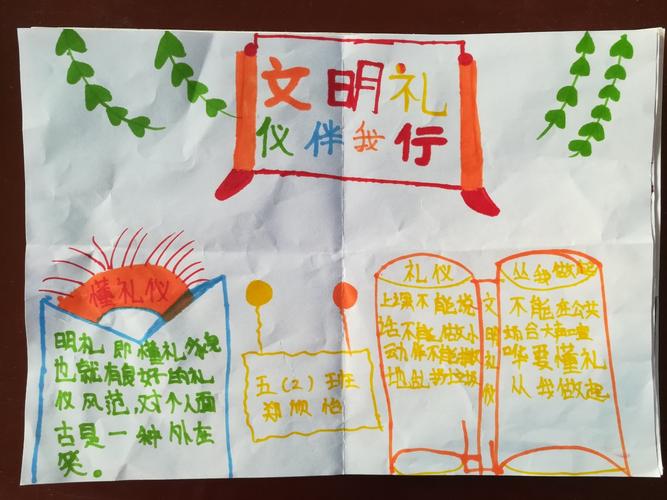 文明礼
仪伴我行
懂礼仪
明礼即懂礼貌
也就有良好的礼
仪风范,对个人面
古是一种外在
笑。
五(2)班
郑怡
礼仪
上课不能说
话不能做小
动作不能随
地乱扔垃圾
文明礼仪
从我做起
不能在公共
场合大声喧
哗要懂礼
从我做起